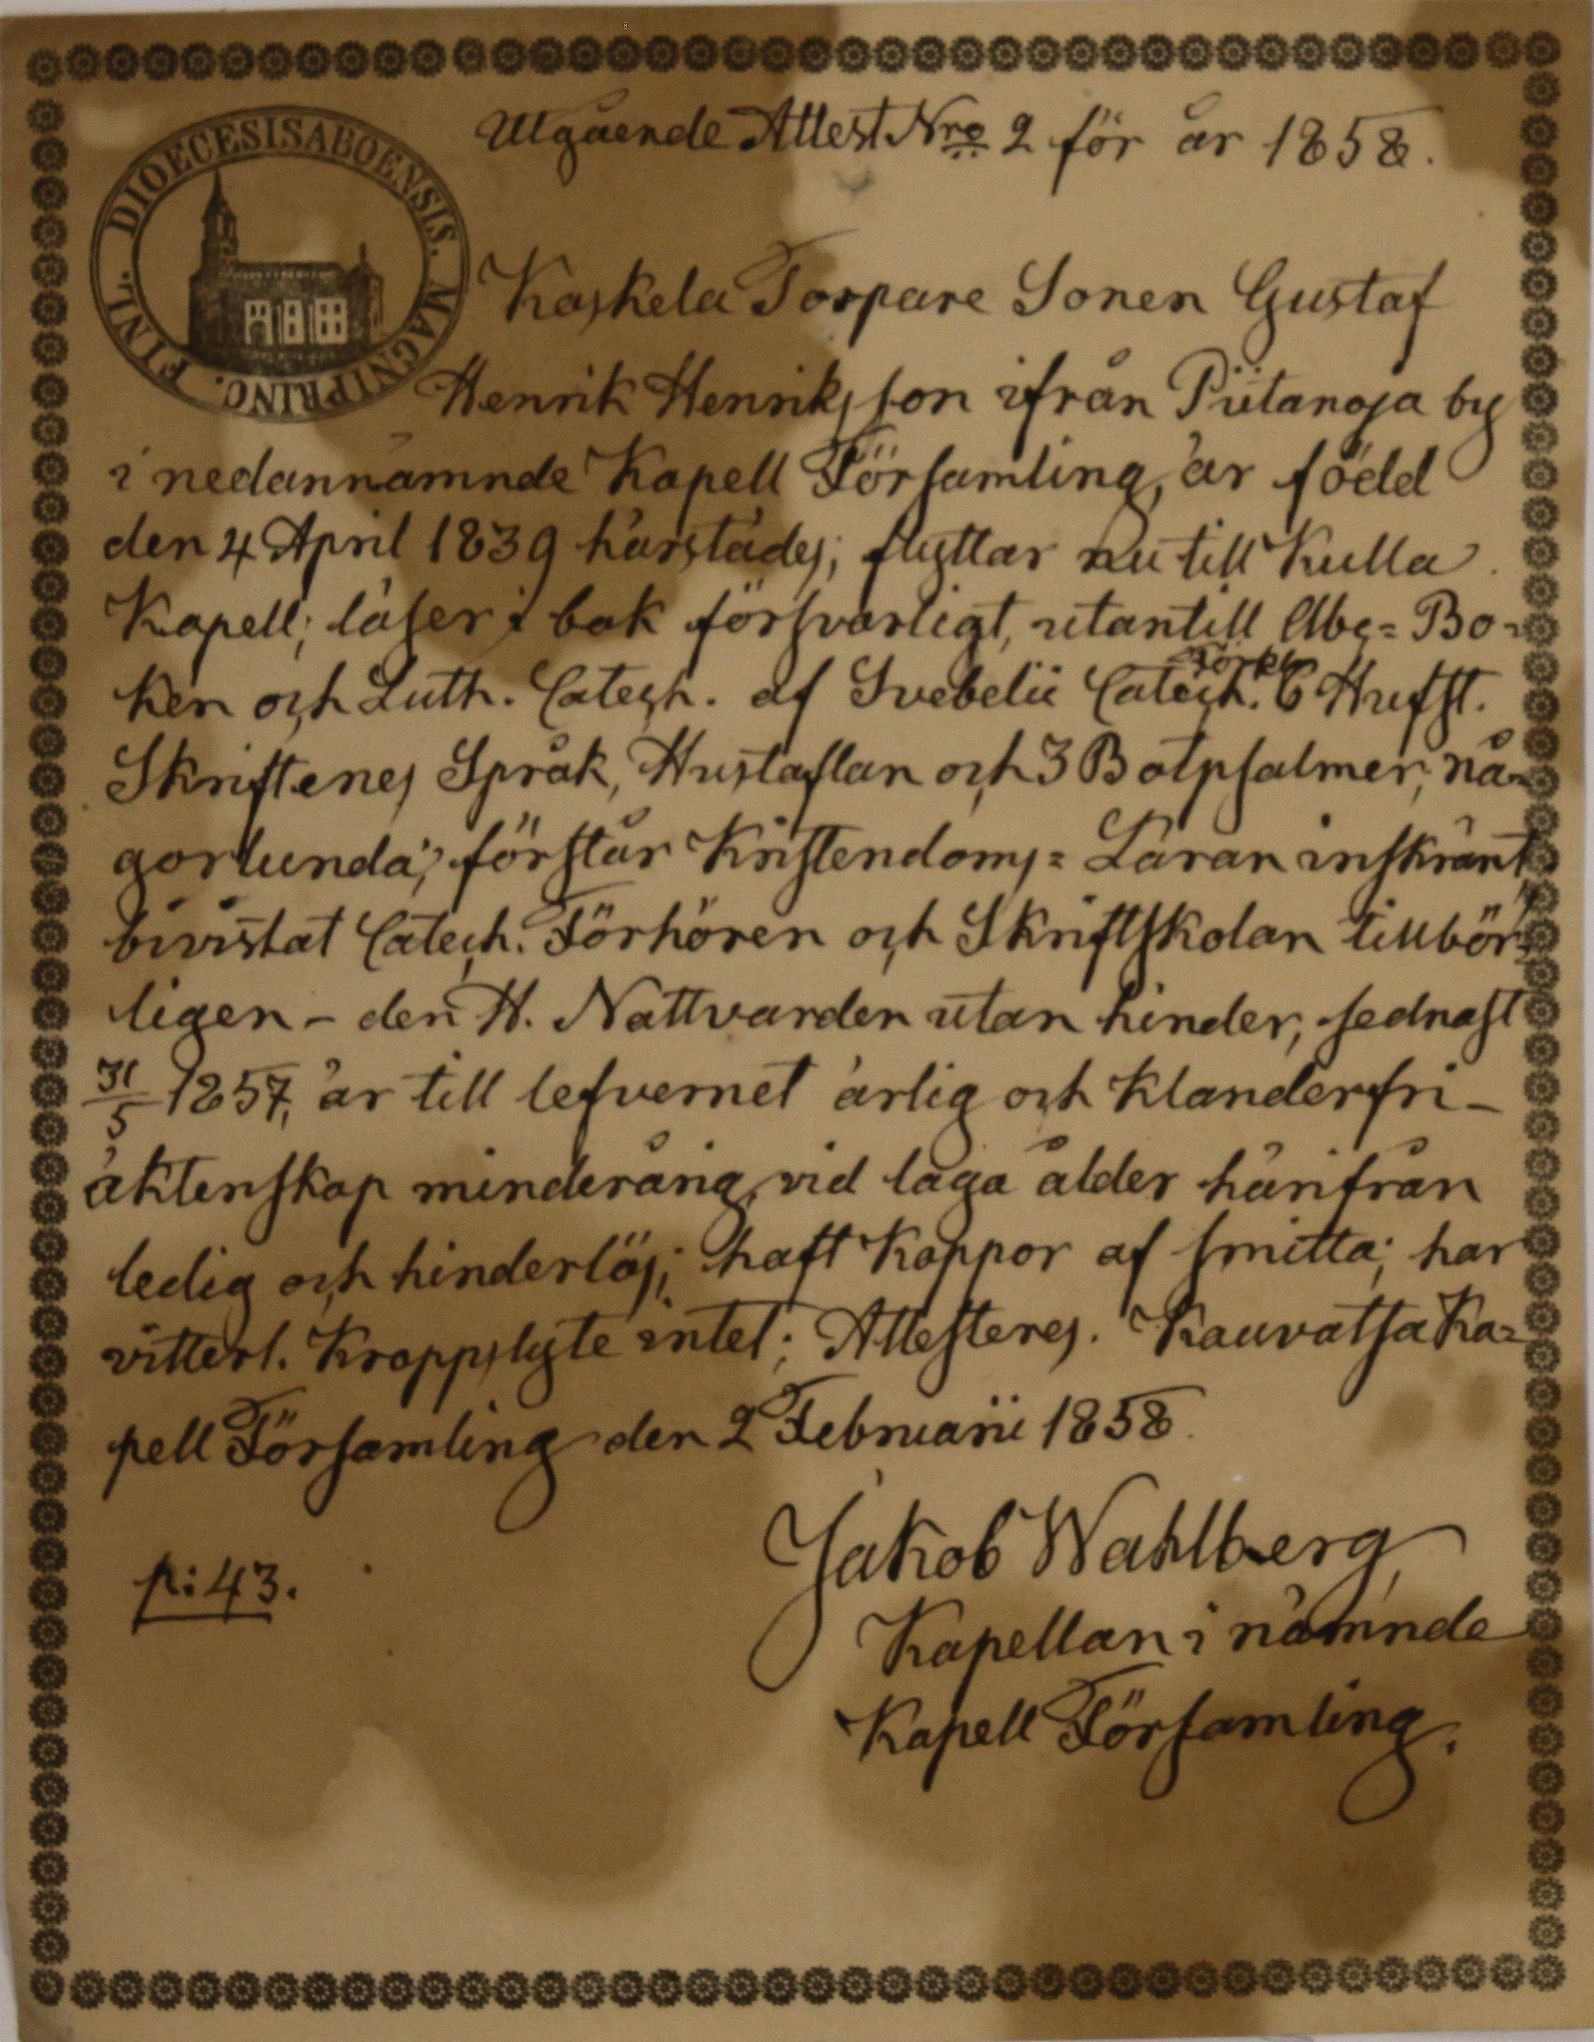 DIOECESIS ABOENSIS. MAGNI PRINC. FINL.
Utgående Attest Nro 2 för år 1858.
Kaskela Torpare Sonen Gustaf
Henrik Henriksson ifrån Piitanoja by
i nedannämnde Kapell Församling, är född
den 4 April 1839 härstädes; flyttar nu till Kulla
Kapell; läser i bok försvarligt, utantill Abc=Bo-
ken och Luth. Catech. af Svebelii Catech. 6 Hufst.
Skriftenes Språk, Hustaflan och 3 Botpsalmer, nå-
gorlunda; förstår Kristendoms=Läran inskränt,
bivistat Catech. Förhören och Skriftskolan tillbör-
ligen - den H. Nattvarden utan hinder, sednast
31/5 1857, är till lefvernet ärlig och klanderfri -
äktenskap minderårig, vid laga ålder härifrån
ledig och hinderlös; haft Koppor af smitta; har
vitterl. Kroppslyte intet; Attesteres. Kauvatsa Ka-
pell Församling den 2 Februarii 1858.
Jakob Wahlberg,
Kapellan i nämnde
Kapell Församling.
p: 43.